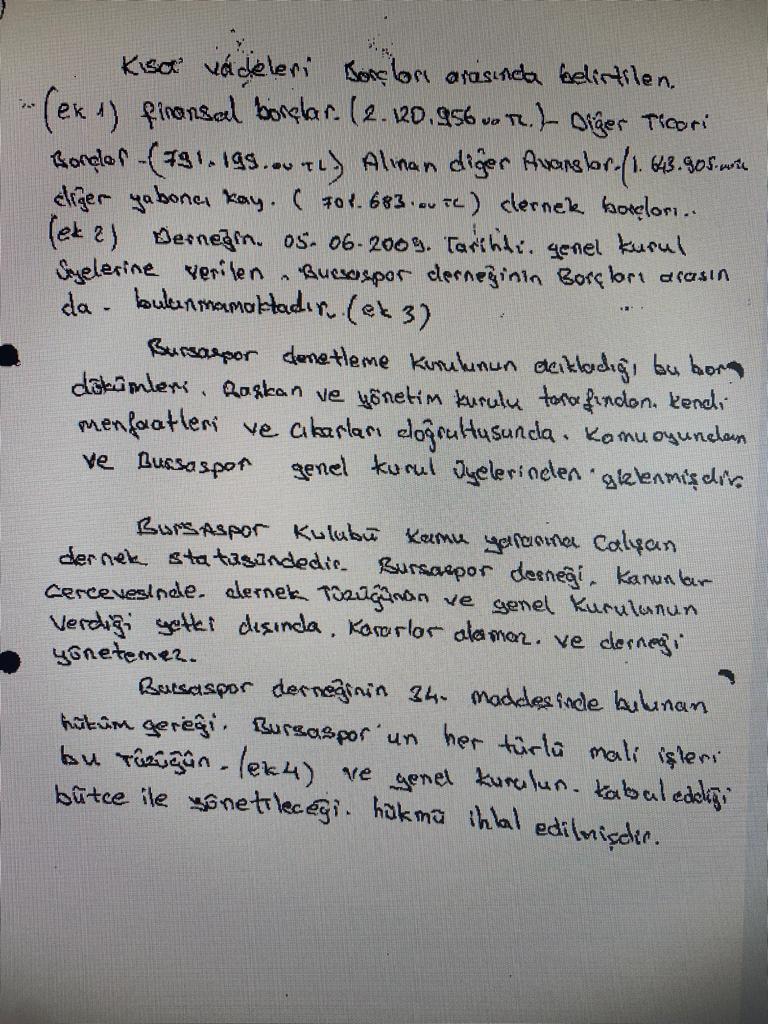 Kısa vadeleri Borçları arasında belirtilen.
(ek 1) finansal borçlar. (2.120.956.00 TL.)- Diğer Ticari
Borçlar -(791.199.00 TL) Alınan diğer Avanslar-(1.643.905.
diğer yabancı kay. ( 701.683.00 TL) dernek borçları..
(ek 2) Derneğin. 05-06-2009. Tarihli. genel kurul
üyelerine verilen. Bursaspor derneğinin Borçları arasın
da - bulunmamaktadır. (ek 3)
Bursaspor denetleme kurulunun acıkladığı bu borç
dökümleri. Başkan ve yönetim kurulu tarafından. kendi
menfaatleri ve cıkarları doğrultusunda. Kamuoyundan
ve Bursaspor genel kurul üyelerinden gizlenmişdir.
BURSASPOR Kulubü kamu yararına Calışan
dernek statüsündedir. Bursaspor derneği. Kanunlar
Cercevesinde. dernek Tüzüğünün ve genel Kurulunun
Verdiği yetki dışında. Kararlar alamaz. ve derneği
yönetemez.
Bursaspor derneğinin 34. maddesinde bulunan
hüküm gereği. Bursaspor'un her türlü mali işleri
bu Tüzüğün - (ek4) ve genel kurulun. kabul eddiği
bütce ile yönetileceği. hükmü ihlal edilmişdir.